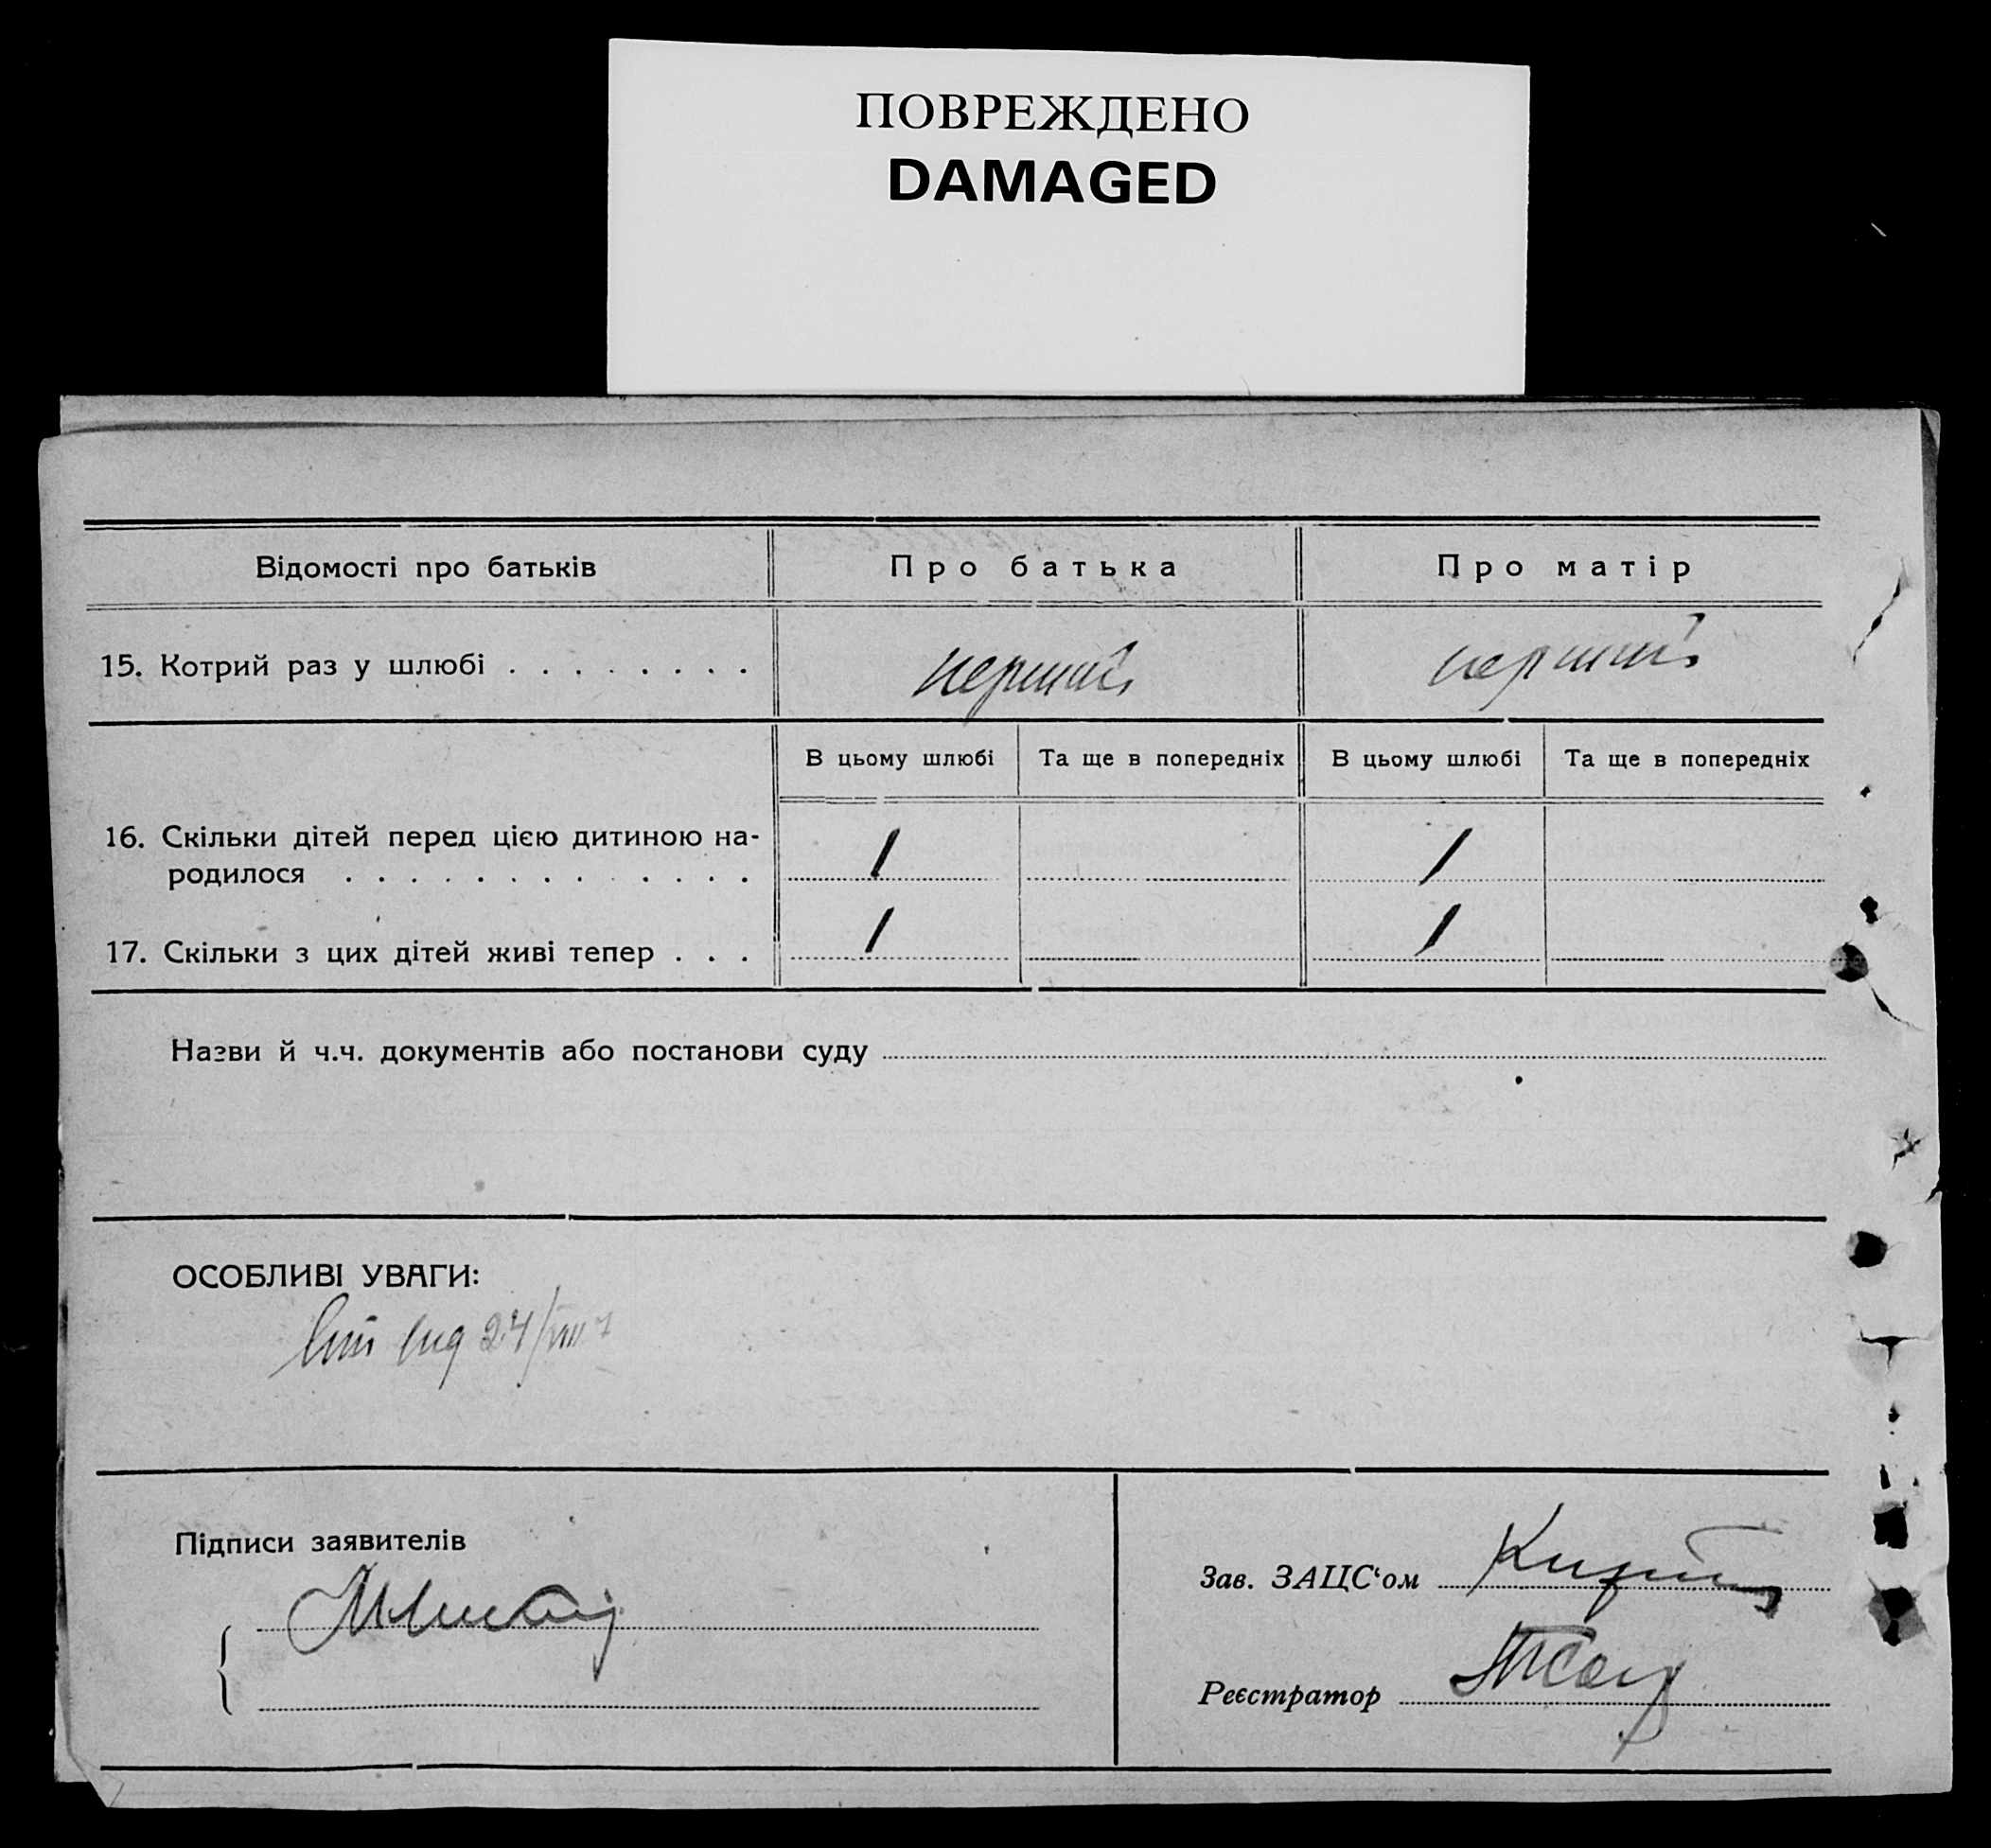 ПОВРЕЖДЕНО
DAMAGED
Відомості про батьків Про батька Про матір
15. Котрий раз у шлюбі . . . . . . . . перший перший
В цьому шлюбі Та ще в попередніх В цьому шлюбі Та ще в попередніх
16. Скільки дітей перед цією дитиною на-
родилося . . . . . . . . . . . . . 1 1
17. Скільки з цих дітей живі тепер . . . 1 1
Назви й ч.ч. документів або постанови суду
ОСОБЛИВІ УВАГИ:
24/VIII
Підписи заявителів
Зав. ЗАЦС‘ом
Реєстратор